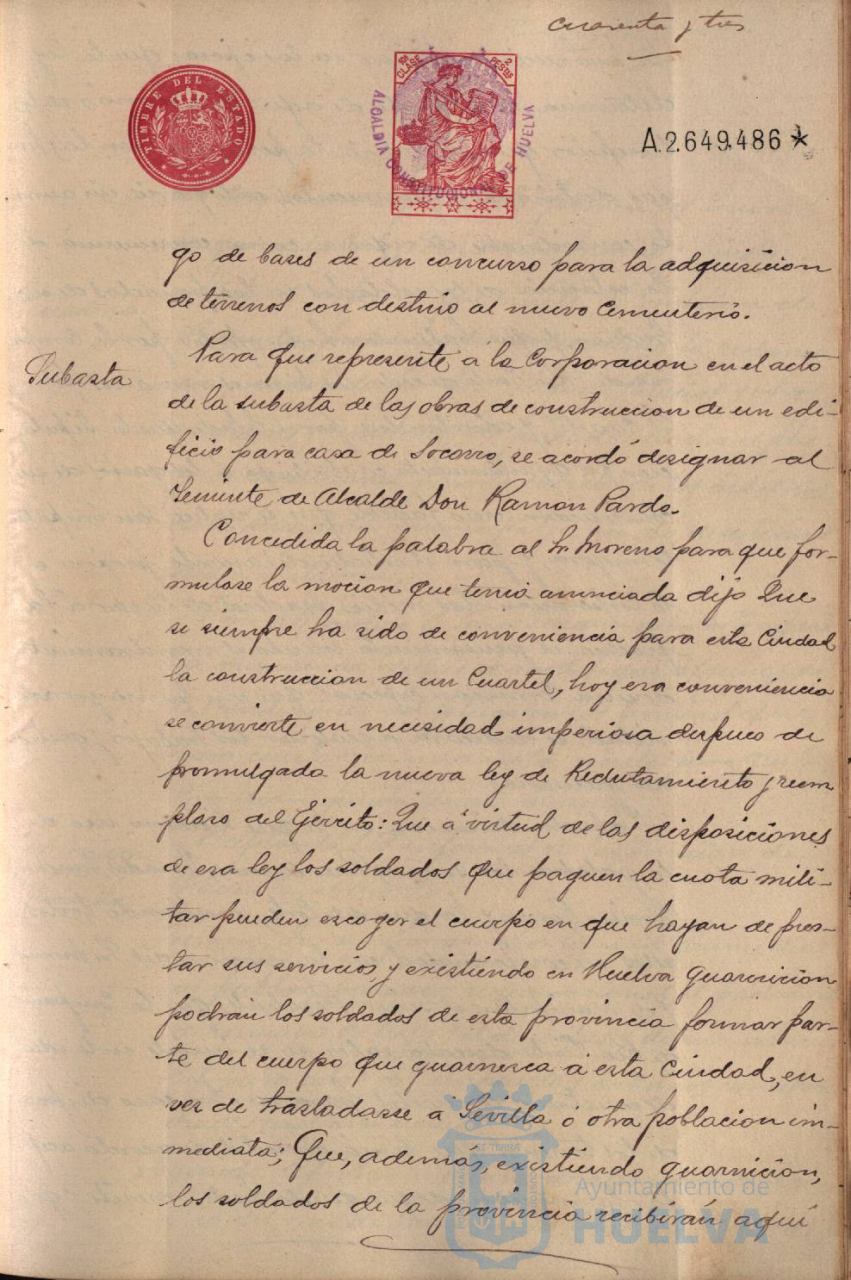 cuarenta y tres
TIMBRE DEL ESTADO
10ª CLASE 2 PESETAS
ALCALDIA CONSTITUCIONAL DE HUELVA
A.2.649.486*
go de bases de un concurso para la adquisicion
de terrenos con destino al nuevo Cementerio.
Subasta
Para que represente á la Corporacion en el acto
de la subasta de las obras de construccion de un edi-
ficio para casa de Socorro, se acordó designar al
Teniente de Alcalde Don Ramon Pardo.
Concedida la palabra al Sr. Moreno para que for-
mulase la mocion que tenia anunciada dijo Que
si siempre ha sido de conveniencia para esta Ciudad
la construccion de un Cuartel, hoy esa conveniencia
se convierte en necesidad imperiosa despues de
promulgada la nueva ley de Reclutamiento y reem
plaso del Ejército: Que á virtud de las disposiciones
de esa ley los soldados que paguen la cuota mili-
tar pueden escoger el cuerpo en que hayan de pres-
tar sus servicios y existiendo en Huelva guarnicion
podran los soldados de esta provincia formar par-
te del cuerpo que guarnesca á esta Ciudad, en
ves de trasladarse á Sevilla ó otra poblacion in-
mediata; Que, además, existiendo guarnicion,
los soldados de la provincia recibirán aquí
Ayuntamiento de
HUELVA